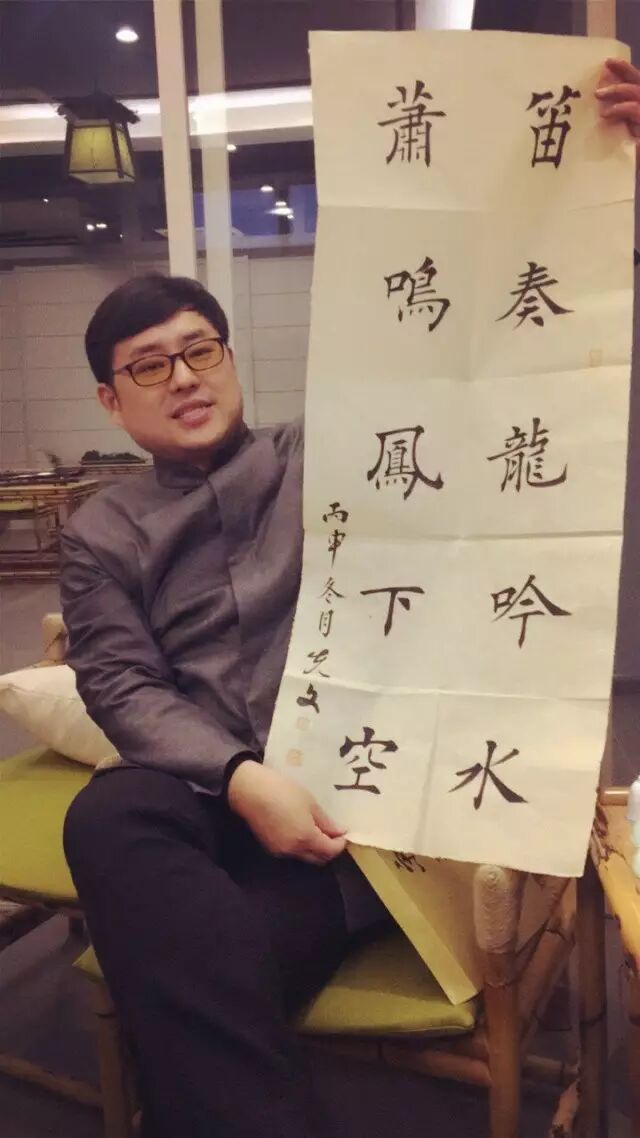 笛奏龍吟水
蕭鳴鳳下空
丙申冬月先文